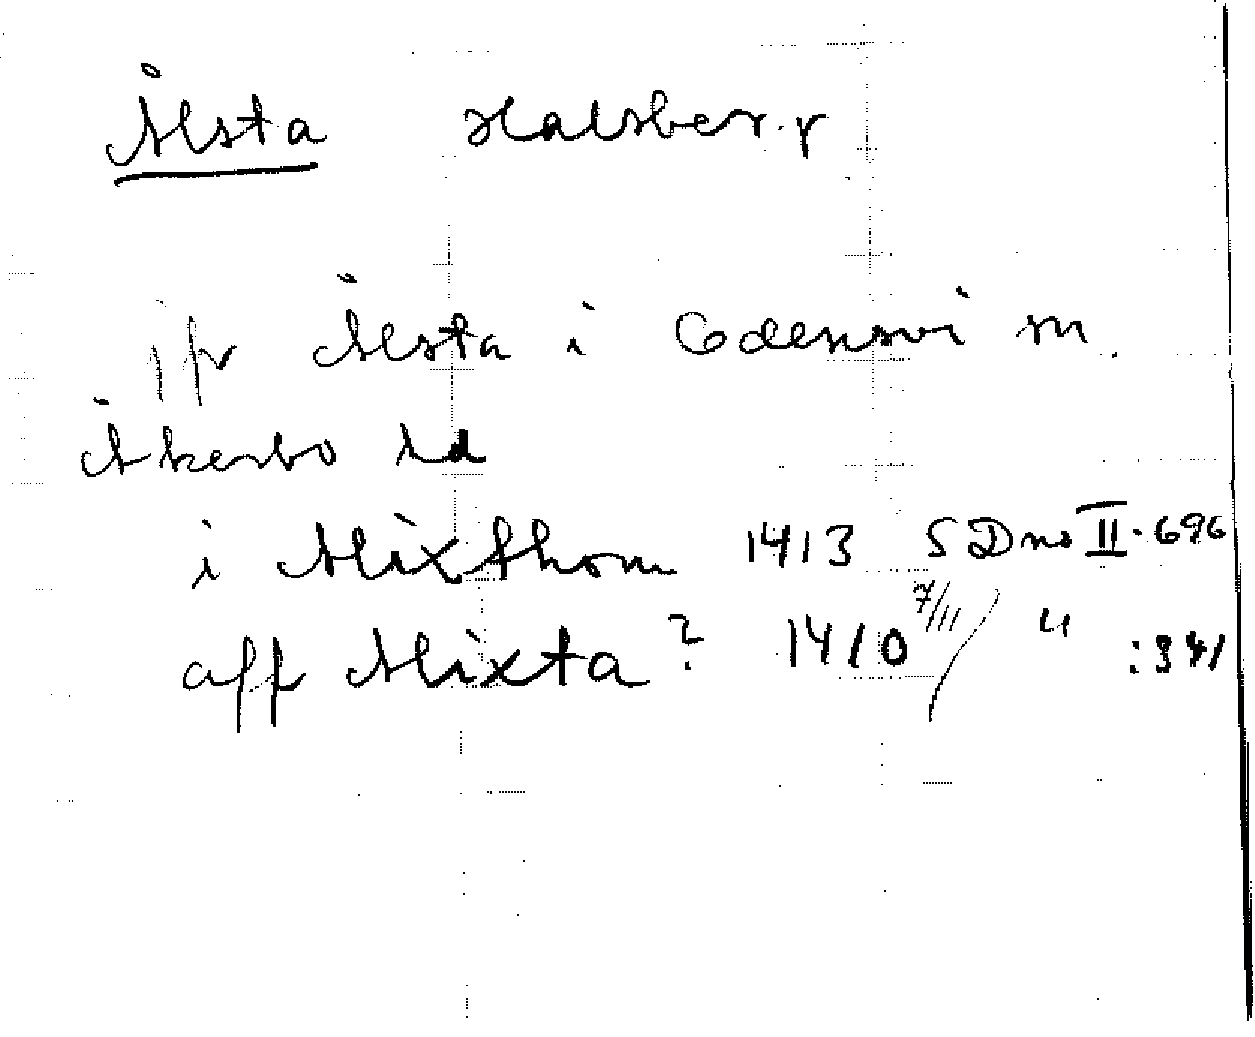 Ålsta Halsberg. r
jfr Ålsta i Odensvi sn.
Åkerbo hd
i Alixthom 1413 SDns II. 696
aff Alixta? 1410 7/11 / " : 341